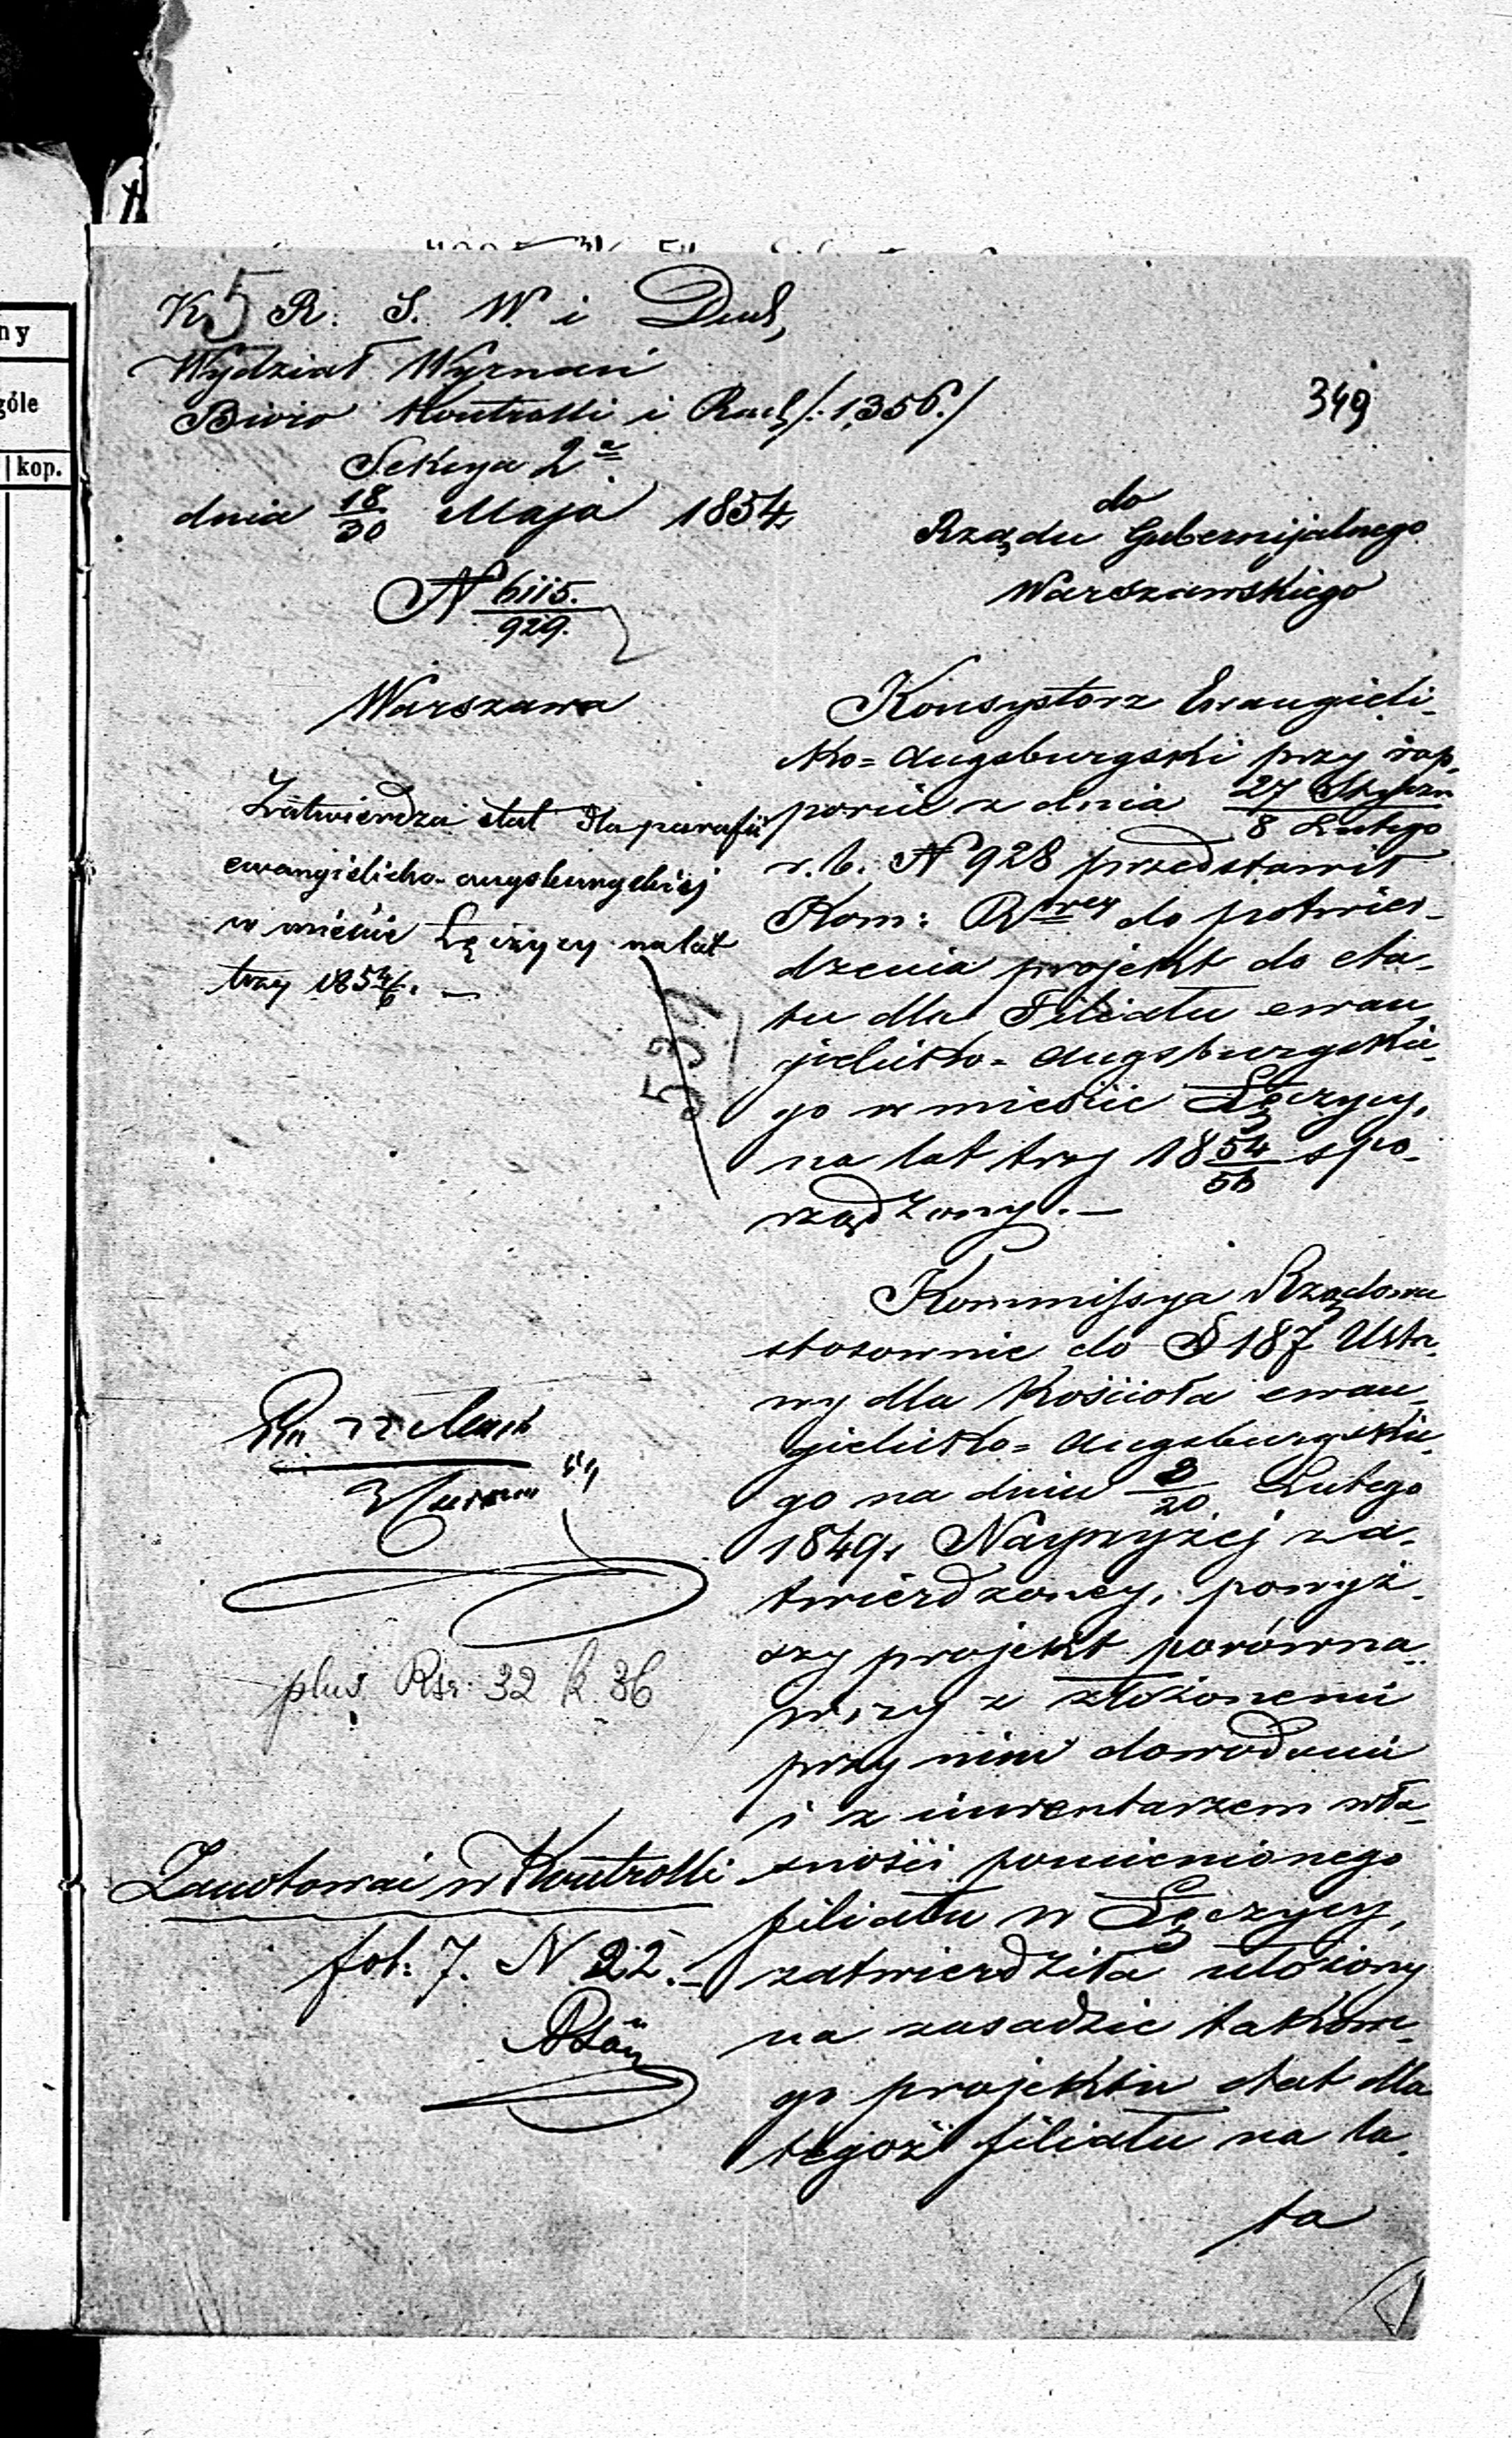 ny
góle
kop.
349
K. R. S. W. i Duch,
5
Wydział Wyznań
Biuro Kontrolli i Rach /:1,356./
Sekcya 2a
dnia 18/30 Maja 1854
N 6115./929.
Warszawa
Zatwierdza etat dla parafii
ewangielicko-augsburgskiej
w mieście Łęczycy na lat
trzy 1854/6. —
539
plus Rsr. 32 k. 36
Zanotowai w Kontrolli
fol: 7. N. 22. —
do
Rządu Gubernijalnego
Warszawskiego
Konsystorz Ewangieli-
cko=Augsburgski przy rap-
porcie z dnia 27 Stycznia/8 Lutego
r. b. N 928 przedstawił
Kom: Rwey do potwier-
dzenia projekt do eta-
tu dla Filiału ewan-
gielicko=Augsburgskie-
go w mieście Łęczycy,
na lat trzy 1854/56 spo-
rządzony. —
Kommissya Rządowa
stosownie do § 187 Usta-
wy dla Kościoła ewan-
gielicko=Augsburgskie-
go na dniu 8/20 Lutego
1849 r. Naywyżej za-
twierdzoney, powyż-
szy projekt porówna-
wszy z złożonemi
przy nim dowodami
i z inwentarzem wła-
sności pomienionego
filiału w Łęczycy,
zatwierdziła ułożony
na zasadzie takowe-
go projektu etat dla
tegoż filiału na la-
ta